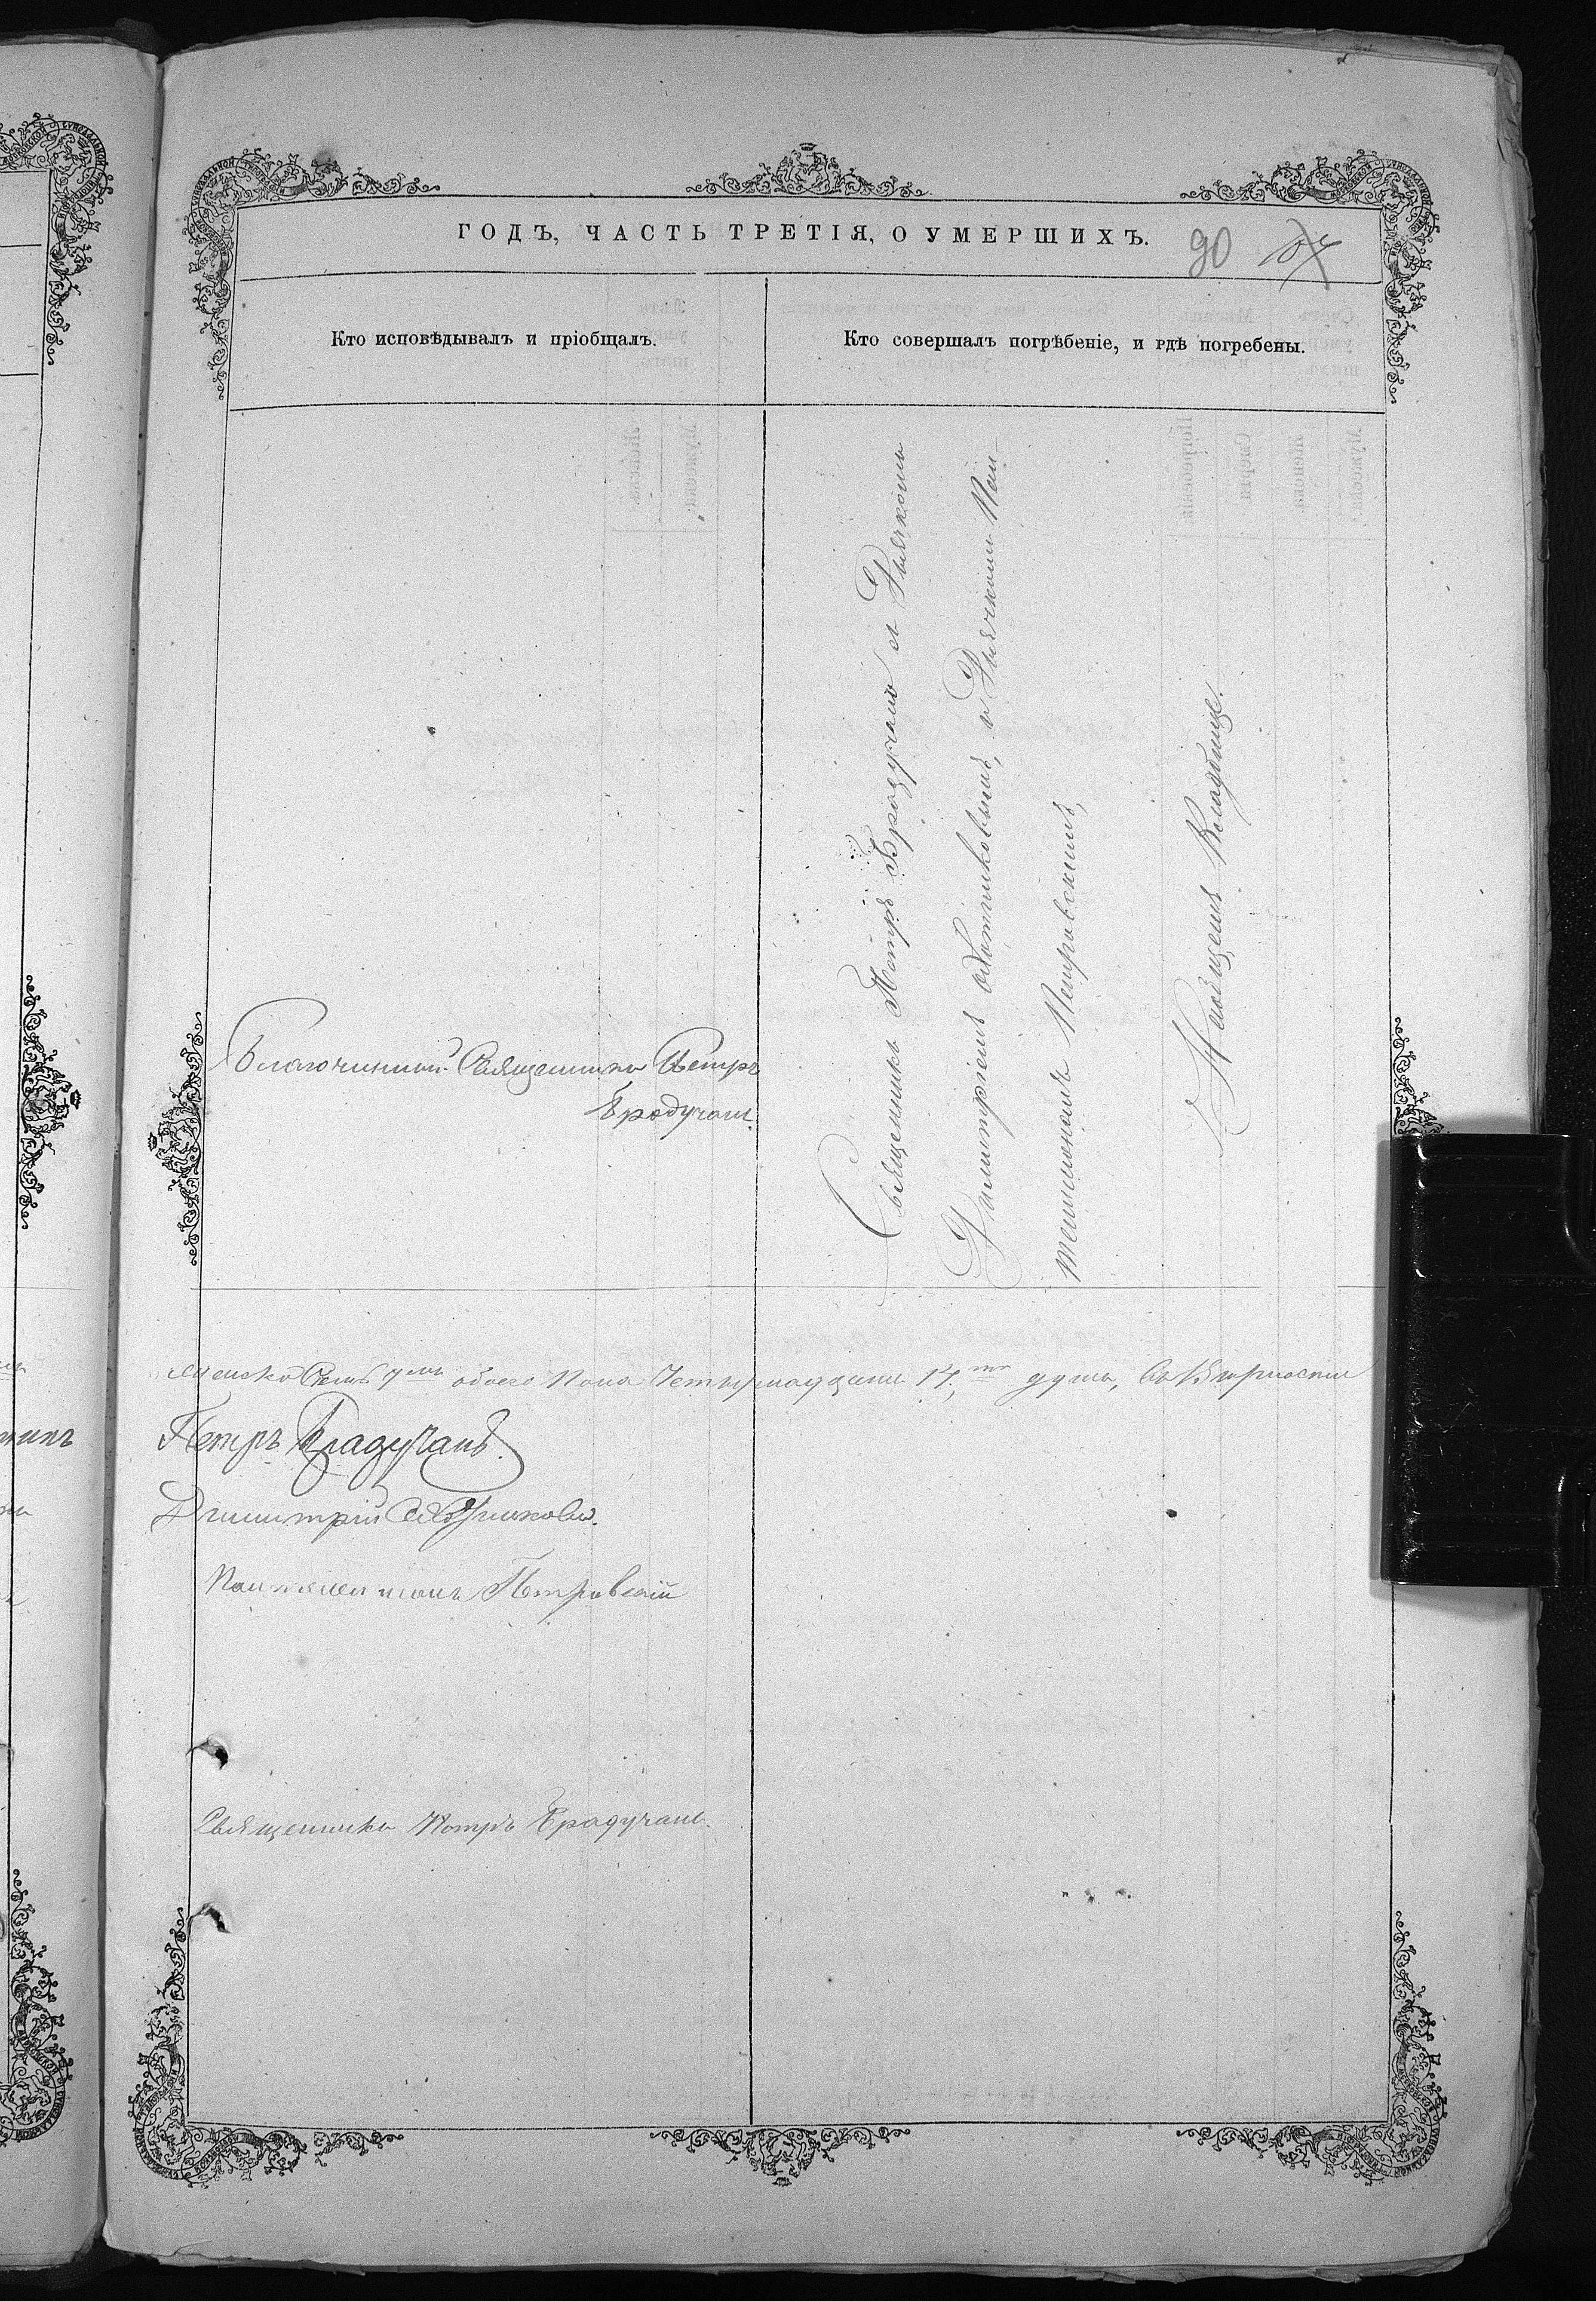 ГОДЪ, ЧАСТЬ ТРЕТІЯ, О УМЕРШИХЪ.
90
Кто исповѣдывалъ и пріобщалъ.
Кто совершалъ погрѣбеніе, и гдѣ погребены.
Благочинный Священникъ Петръ
Бродучанъ.
Священникъ Петръ Бродучанъ съ Дьячкомъ
Димитріемъ и Дьячкомъ Пан-
телимономъ Петровскимъ,
Кладбище.
Семь 7мъ обоего Пола Четырнадцать 14,ть душъ,
Петръ Брадучанъ.
Димитрій
Пантелеимонъ Петровскій
Священникъ Петръ Брадучанъ.